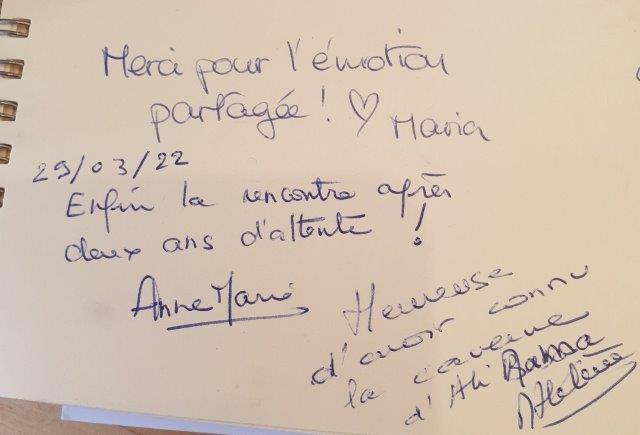 Merci pour l'émotion
partagée ! ♡ Maria
29/03/22
Enfin la rencontre après
deux ans d'attente !
Anne Marie
Heureuse
d'avoir connu
la caverne
d'Ali Baba
Hélène